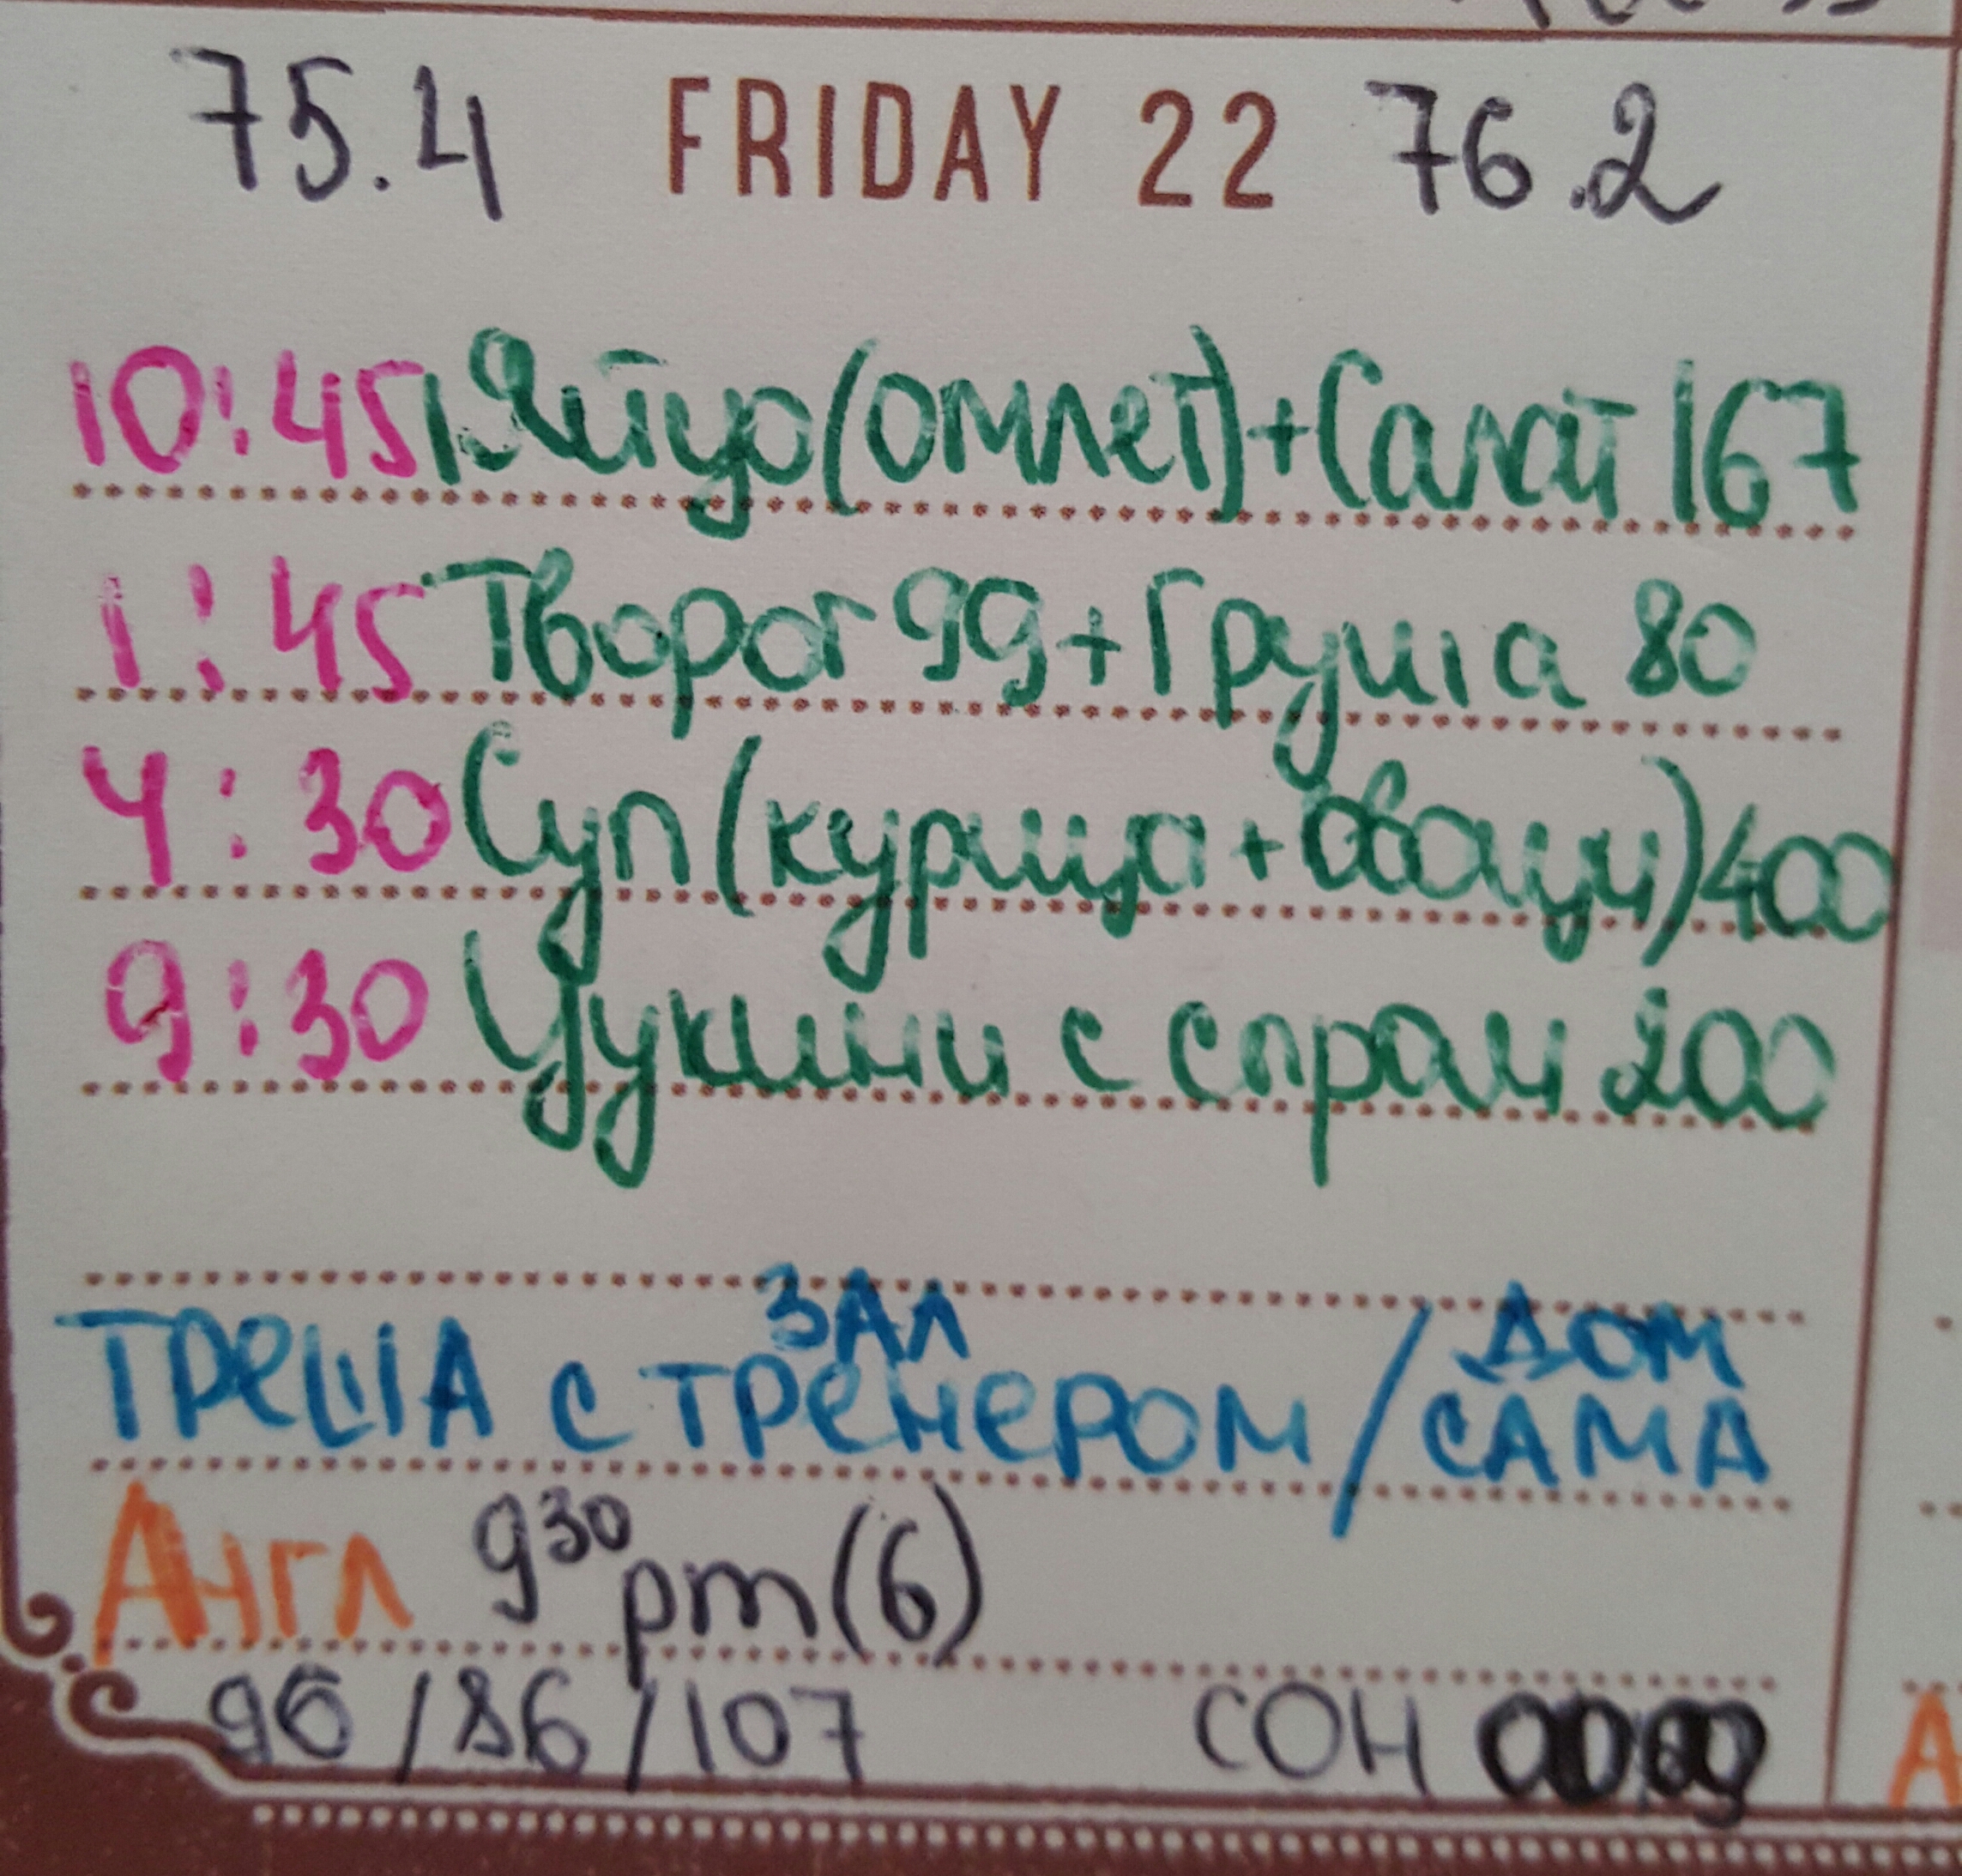 75.4 FRIDAY 22 76.2
10:45 1 Яйцо (омлет) + Салат 167
1:45 Творог 99 + Груша 80
4:30 Суп (курица + овощи) 400
9:30 Цукини с спрам 200
ЗАЛ ДОМ
ТРЕША С ТРЕНЕРОМ / САМА
Англ 9³⁰ pm (6)
96 / 86 / 107 СОН